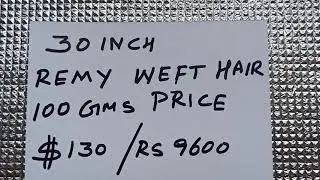 30 INCH
REMY WEFT HAIR
100 GMS PRICE
$130 / RS 9600